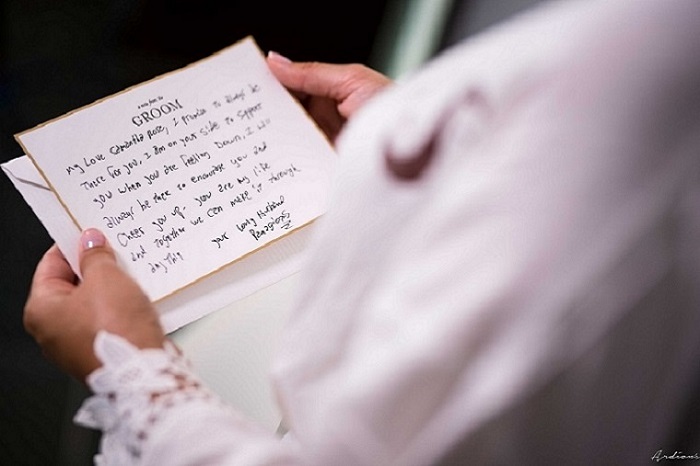 a note from the
GROOM
my Love Samantha Rose, I Promise to always be
There for you, I am on your side to support
you when you are feeling Down, I will
always be there to encourage you and
Cheer you up. you are my life
and together we can make it through
anything
your Loving Husband
Ardian